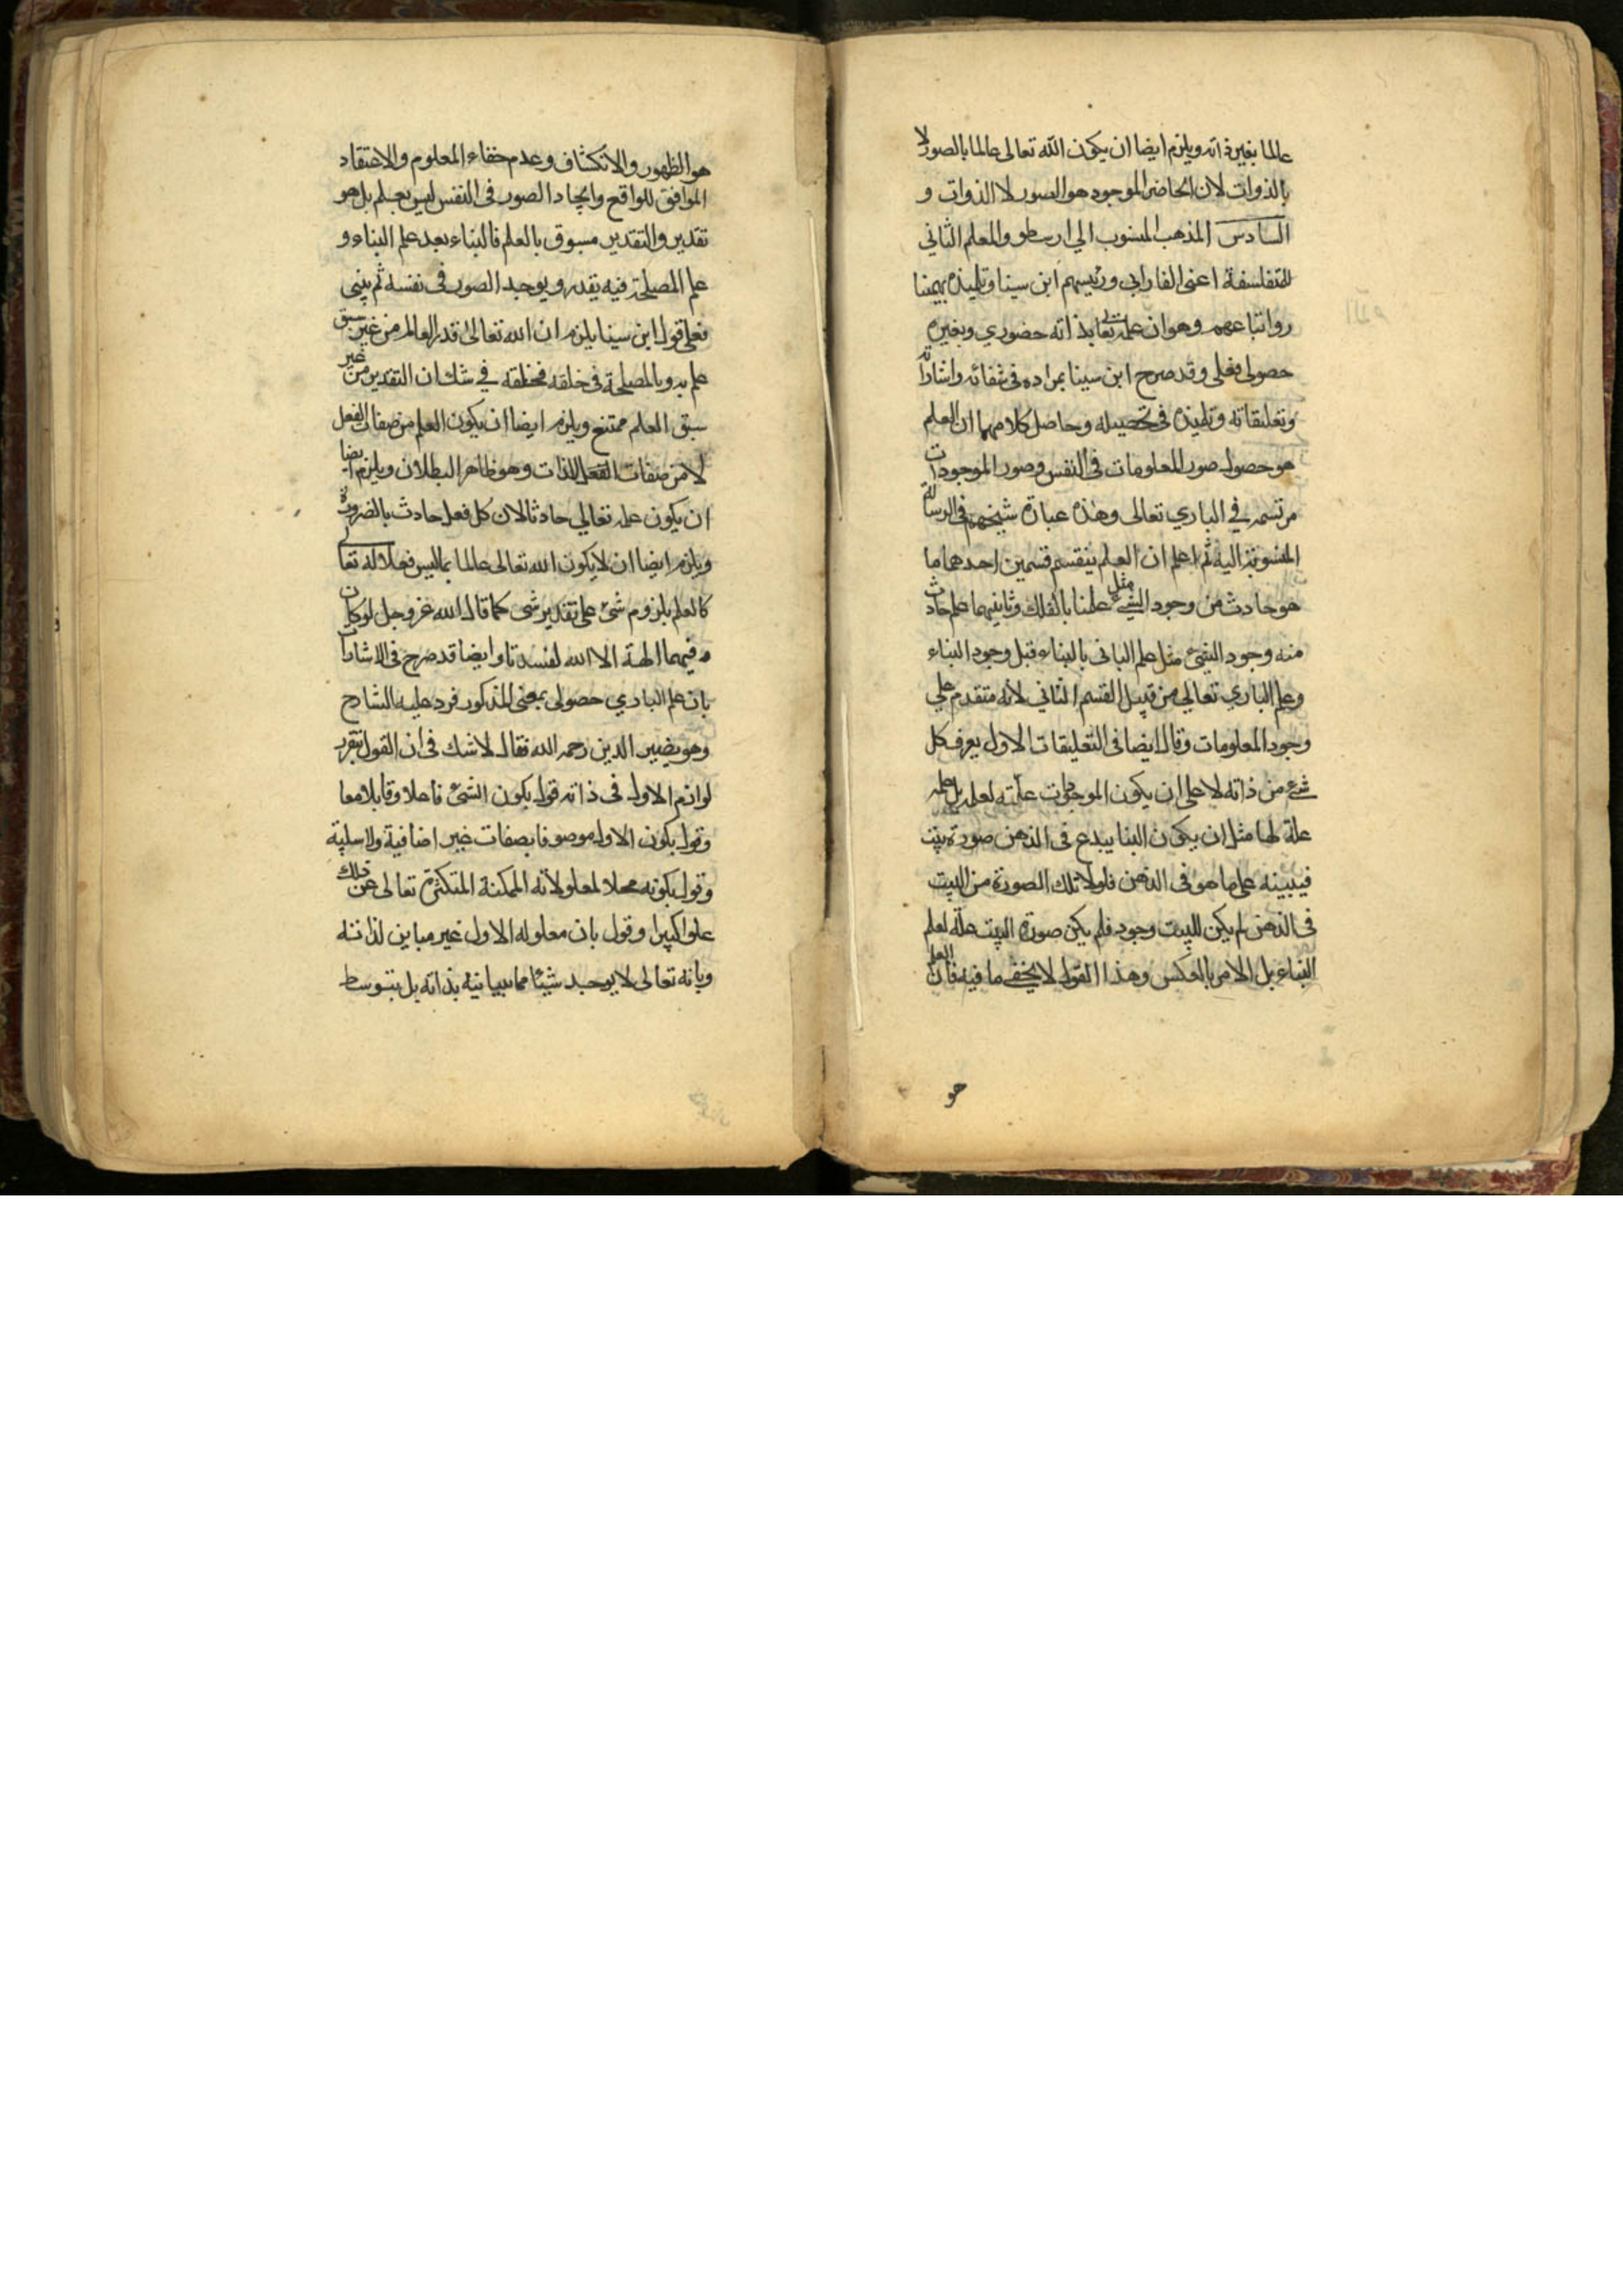 عالما بغير ذاته ويلزم ايضا ان يكون الله تعالى عالما بالصور لا
بالذوات لان الحاضر الموجود هو الصور لا الذوات و
السادس المذهب المنسوب الي ارسطو والمعلم الثاني
للمتفلسفة اعنى الفارابي ورئيسهم ابن سينا وتلميذه بهمنيا
ر واتباعهم وهو ان علمه تعالى بذاته حضوري وبغيره
حصولى فعلى وقد صرح ابن سينا بمراده فى شفائه واشاراته
وتعليقاته وتلميذه فى تحصيله وحاصل كلامهما ان العلم
هو حصول صور المعلومات فى النفس وصور الموجودات
مرتسمة في الباري تعالى وهذه عبارة شيخهم فى الرسالة
المنسوبة اليه ثم اعلم ان العلم ينقسم قسمين احدهما ما
هو حادث من وجود الشيء مثل علمنا بالفلك وثانيهما علم حادث
منه وجود الشئ مثل علم البانى بالبناء قبل وجود البناء
وعلم الباري تعالي من قبيل القسم الثاني لأنه متقدم علي
وجود المعلومات وقال ايضا فى التعليقات الاول يعرف كل
شئ من ذاته لا على ان يكون الموجودات علته لعلمه بل علمه
علة لها مثل ان يكون البنا يبدع فى الذهن صورة بيت
فيبينه على ما هو فى الذهن فلولا تلك الصورة من البيت
فى الذهن لم يكن للبيت وجود فلم يكن صورة البيت علة لعلم
البناء بل الامر بالعكس وهذا القول لا يخفي ما فيه فان العلم
هو
هو الظهور والانكشاف وعدم خفاء المعلوم والاعتقاد
الموافق للواقع وايجاد الصور فى النفس ليس بعلم بل هو
تقدير والتقدير مسبوق بالعلم فالبناء بعد علم البناء و
علم المصلحة فيه يقدر ويوجد الصور فى نفسه ثم يبنى
فعلى قول ابن سينا يلزم ان الله تعالى قدر العالم من غير سبق
علم به وبالمصلحة فى خلقه فخلقه في شك ان التقدير من غير
سبق العلم ممتنع ويلزم ايضا ان يكون العلم من صفات الفعل
لا من صفات الذات وهو ظاهر البطلان ويلزم ايضا
ان يكون علمه تعالي حادثا لان كل فعل حادث بالضرورة
ويلزم ايضا ان لا يكون الله تعالى عالما بما ليس فعلا له تعالى
كالعلم بلزوم شئ على تقدير شئ كما قال الله عز وجل لو كان
فيهما الهة الا الله لفسدتا وايضا قد صرح فى الاشارات
بان علم الباري حصولى بمعنى المذكور فرد عليه الشارح
وهو نصير الدين رحمه الله فقال لا شك فى ان القول بتقرر
لوازم الاول فى ذاته قول بكون الشئ فاعلا وقابلا معا
وقول بكون الاول موصوفا بصفات غير اضافية ولا سلبية
وقول بكونه محلا لمعلولاته الممكنة المتكثرة تعالى عن ذلك
علوا كبيرا وقول بان معلوله الاول غير مباين لذاته
وبانه تعالى لا يوجد شيئا مما يباينه بذاته بل بتوسط